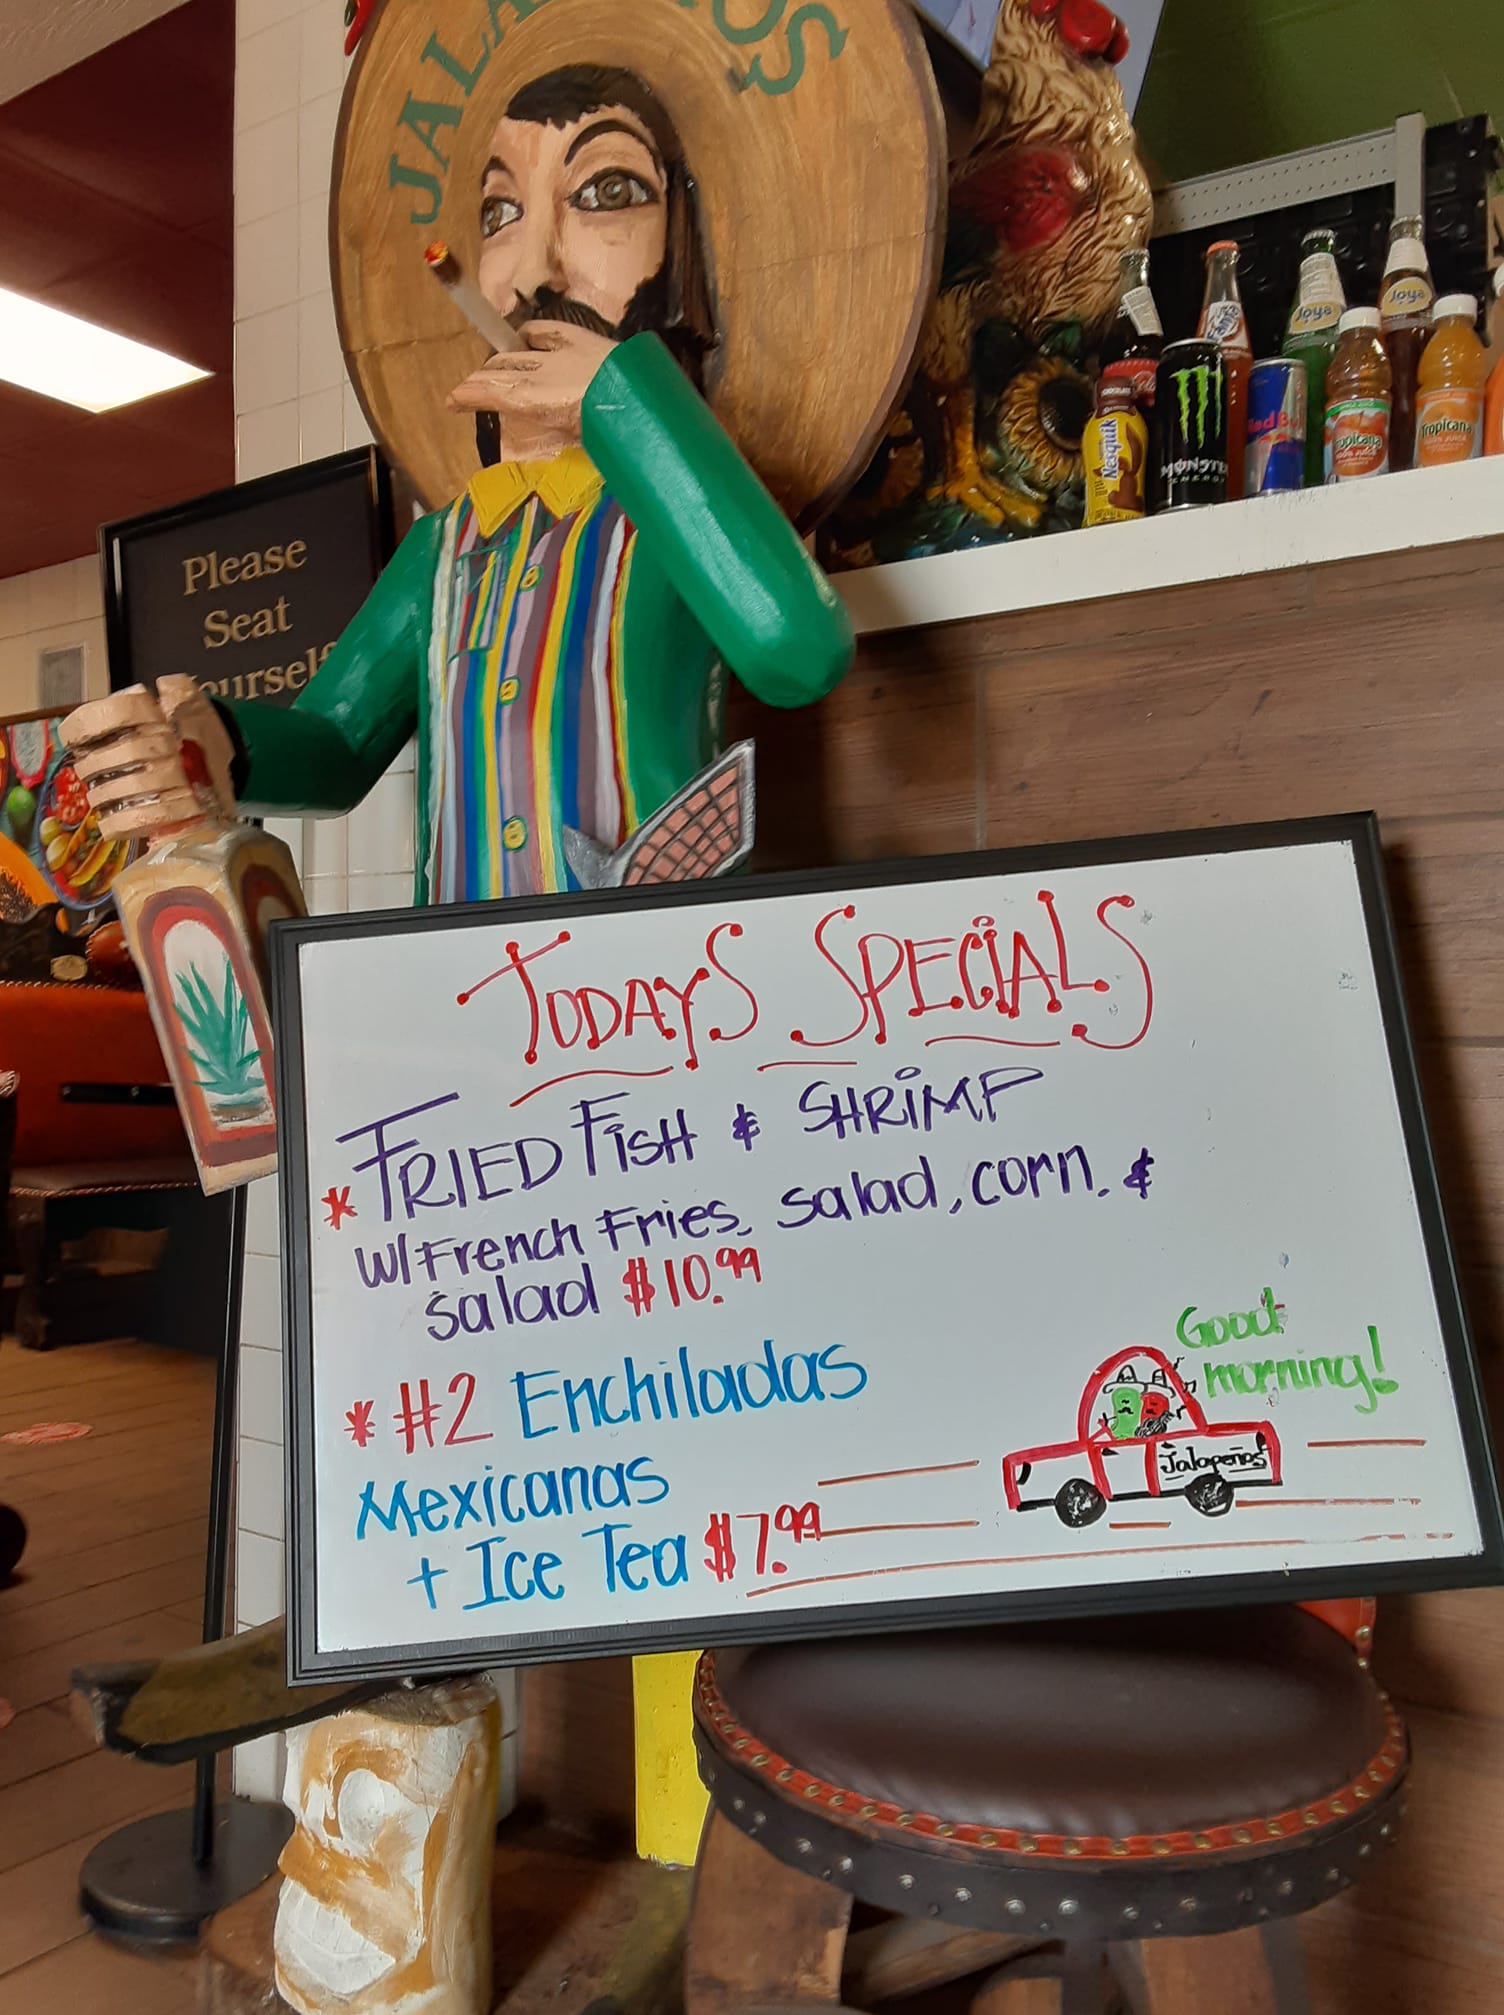 JALA
OS
Please
Seat
Yourself
Fanta
Joya
Joya
Nesquik
MONSTER
ENERGY
Red Bull
Tropicana
100% JUICE
Tropicana
100% JUICE
TODAYS SPECIALS
* FRIED FISH & SHRIMP
W/ French Fries, Salad, corn, &
Salad $10.99
* #2 Enchiladas
Mexicanas
+ Ice Tea $7.99
Good
morning!
Jalapeños